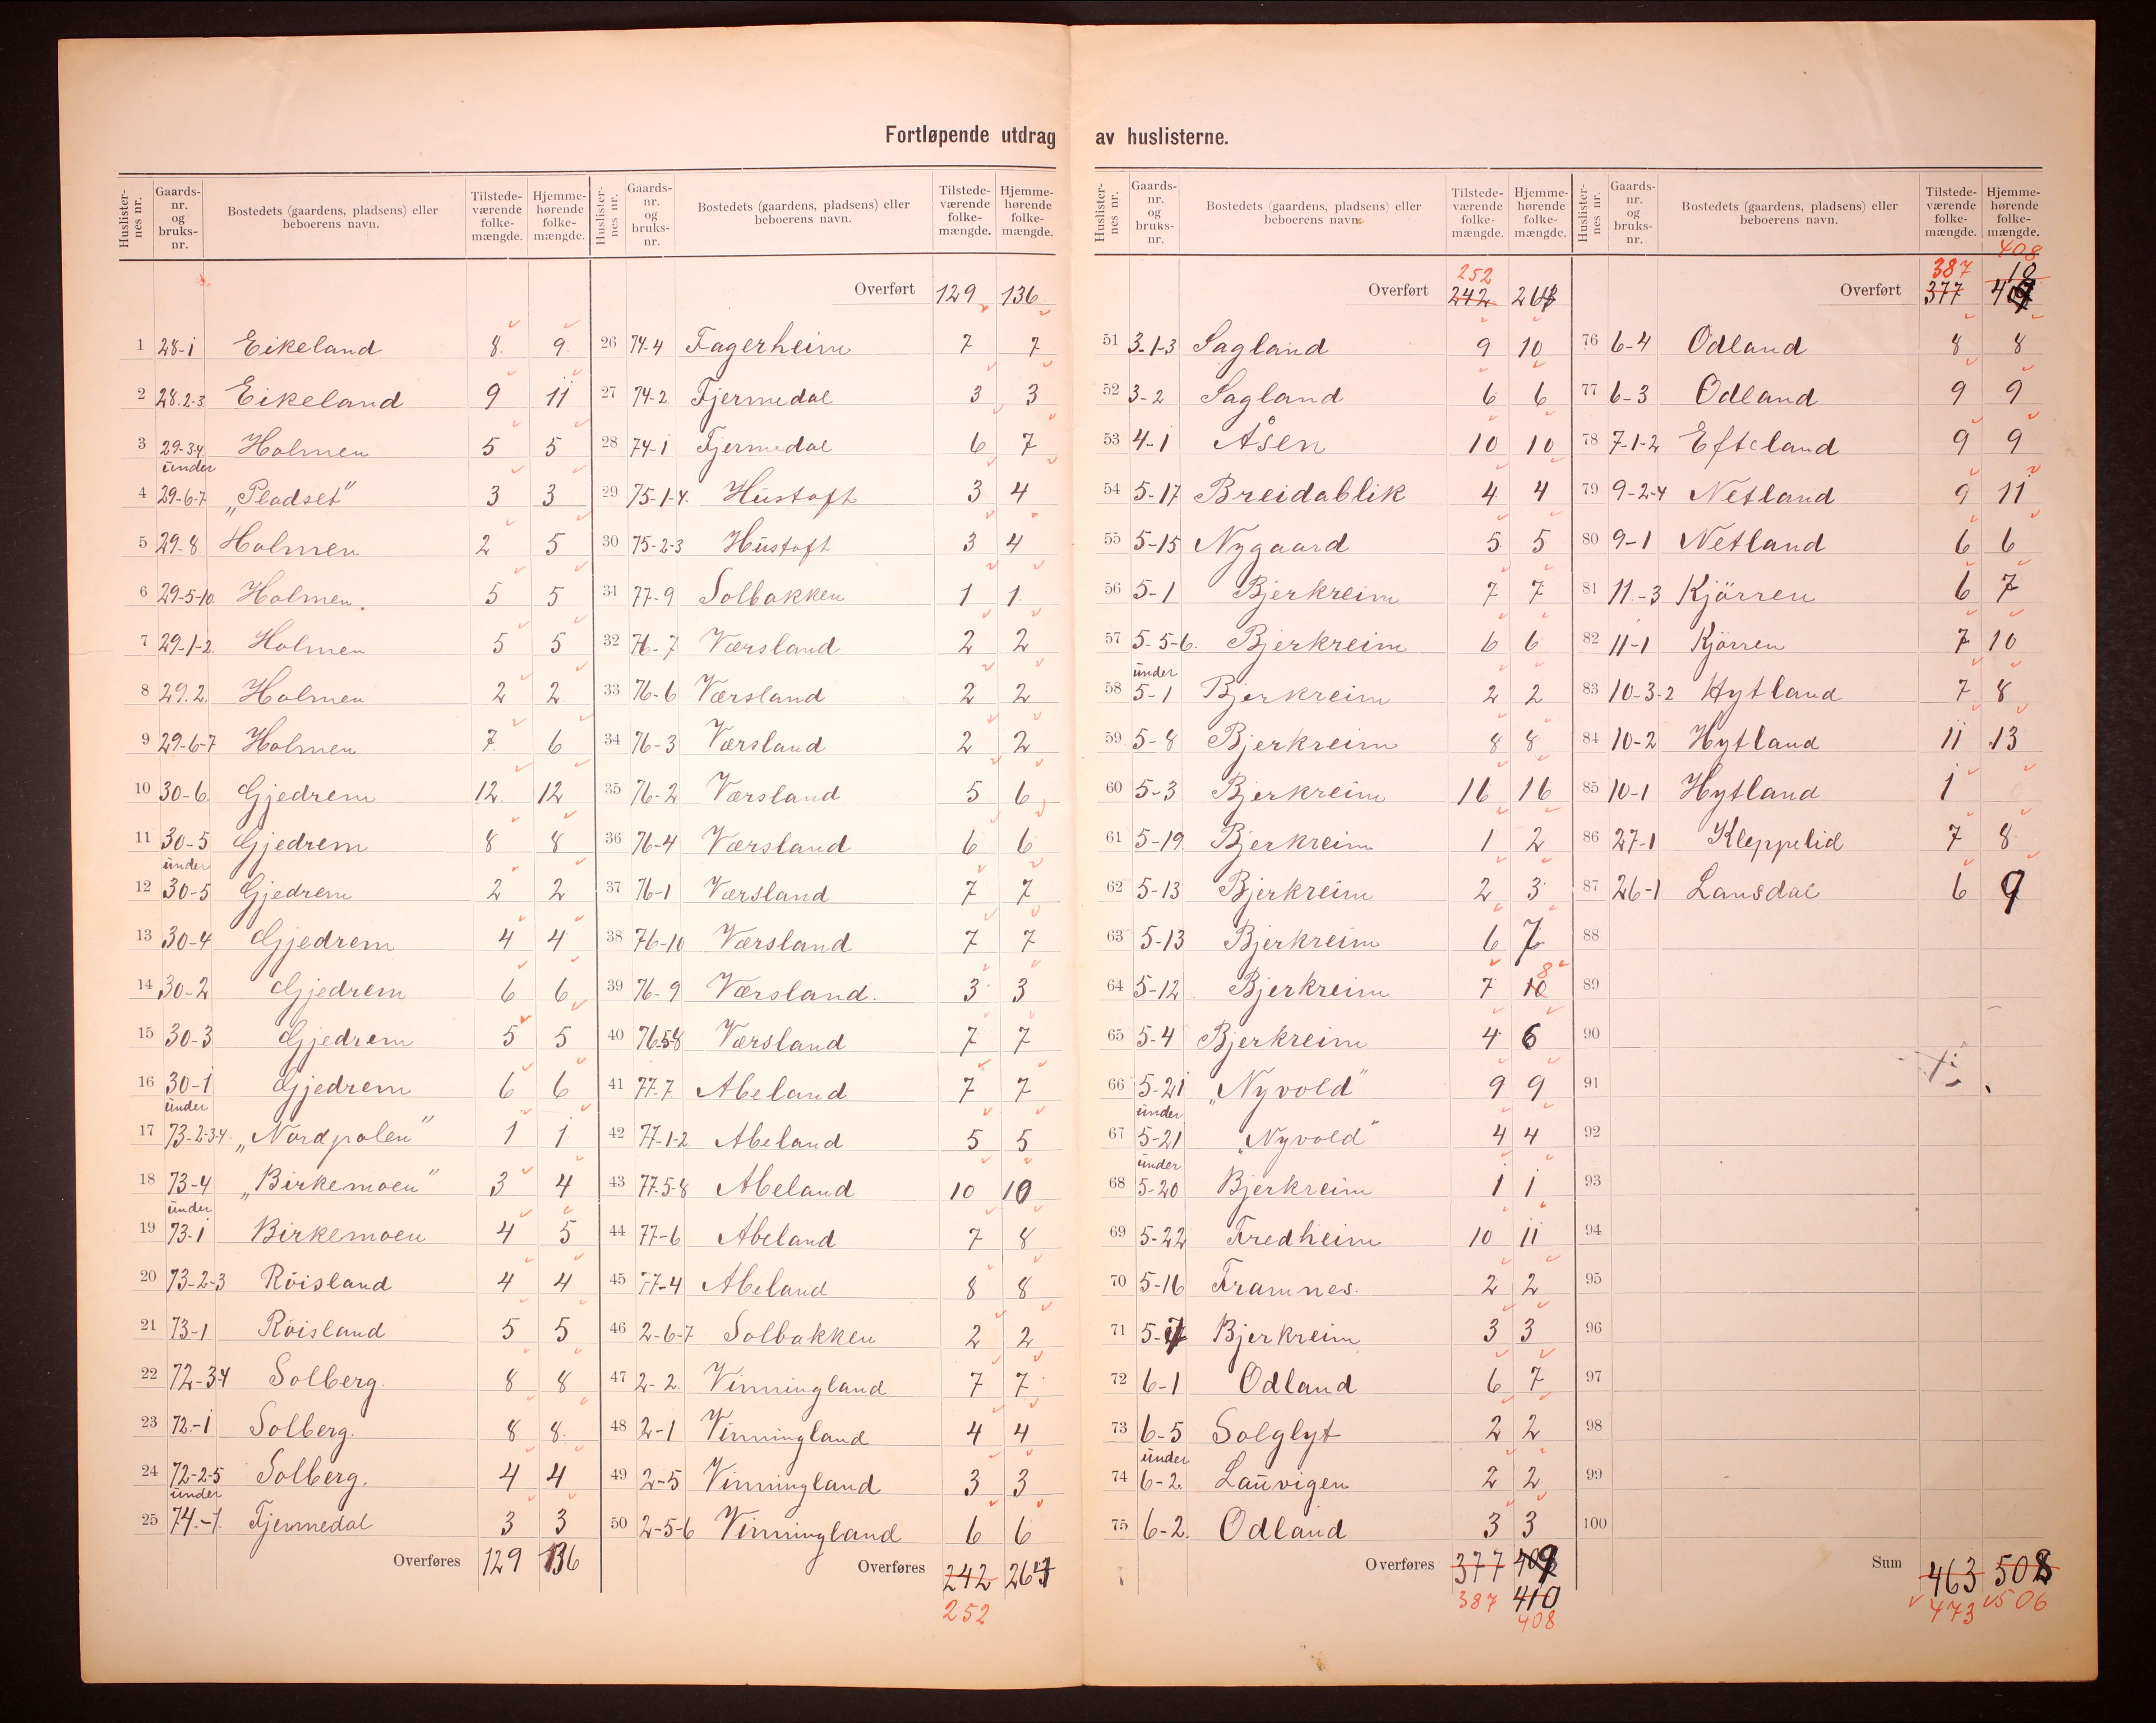 Fortløpende utdrag av huslisterne.
Huslister-nes nr. Gaards-nr. og bruks-nr. Bostedets (gaardens, pladsens) eller beboerens navn. Tilstede-værende folke-mængde. Hjemme-hørende folke-mængde.
1 28-1 Eikeland 8 9
2 28.2-3 Eikeland 9 11
3 29-3-4 Holmen 5 5
4 under 29-6-7 „Pladset" 3 3
5 29-8 Holmen 2 5
6 29-5-10. Holmen. 5 5
7 29-1-2. Holmen 5 5
8 29.2. Holmen 2 2
9 29-6-7 Holmen 7 6
10 30-6 Gjedrem 12 12
11 30-5 Gjedrem 8 8
12 under 30-5 Gjedrem 2 2
13 30-4 Gjedrem 4 4
14 30-2 Gjedrem 6 6
15 30-3 Gjedrem 5 5
16 30-1 Gjedrem 6 6
17 under 73-2-3-4. „Nordpolen" 1 1
18 73-4 „Birkemoen" 3 4
19 under 73-1 Birkemoen 4 5
20 73-2-3 Röisland 4 4
21 73-1 Röisland 5 5
22 72-3-4 Solberg. 8 8
23 72.-1 Solberg. 8 8.
24 72-2-5 Solberg. 4 4
25 under 74.-1. Fjermedal 3 3
Overføres 129 136
Huslister-nes nr. Gaards-nr. og bruks-nr. Bostedets (gaardens, pladsens) eller beboerens navn. Tilstede-værende folke-mængde. Hjemme-hørende folke-mængde.
Overført 129 136
26 74-4 Fagerheim 7 7
27 74-2 Fjermedal 3 3
28 74-1 Fjermedal 6 7
29 75-1-4. Hüstoft 3 4
30 75-2-3 Hüstoft 3 4
31 77-9 Solbakken 1 1
32 76-7 Værsland 2 2
33 76-6 Værsland 2 2
34 76-3 Værsland 2 2
35 76-2 Værsland 5 6
36 76-4 Værsland 6 6
37 76-1 Værsland 7 7
38 76-10 Værsland 7 7
39 76-9 Værsland. 3 3
40 76-5-8 Værsland 7 7
41 77-7. Abeland 7 7
42 77-1-2 Abeland 5 5
43 77-5-8 Abeland 10 10
44 77-6 Abeland 7 8
45 77-4 Abeland 8 8
46 2-6-7 Solbakken 2 2
47 2-2. Vinningland 7 7
48 2-1 Vinningland 4 4
49 2-5 Vinningland 3 3
50 2-5-6 Vinningland 6 6
Overføres 242 264
252
Huslister-nes nr. Gaards-nr. og bruks-nr. Bostedets (gaardens, pladsens) eller beboerens navn. Tilstede-værende folke-mængde. Hjemme-hørende folke-mængde.
252
Overført 242 264
51 3-1-3 Sagland 9 10
52 3-2 Sagland 6 6
53 4-1 Åsen 10 10
54 5-17 Breidablik 4 4
55 5-15 Nygaard 5 5
56 5-1 Bjerkreim 7 7
57 5-5-6. Bjerkreim 6 6
58 under 5-1 Bjerkreim 2 2
59 5-8 Bjerkreim 8 8
60 5-3 Bjerkreim 16 16
61 5-19. Bjerkreim 1 2
62 5-13 Bjerkreim 2 3
63 5-13 Bjerkreim 6 7
64 5-12 Bjerkreim 7 10 8
65 5-4 Bjerkreim 4 6
66 5-21 „Nyvold" 9 9
67 under 5-21 „Nyvold" 4 4
68 under 5-20 Bjerkreim 1 1
69 5-22 Fredheim 10 11
70 5-16 Framnes. 2 2
71 5-7 Bjerkreim 3 3
72 6-1 Odland 6 7
73 6-5 Solglyt 2 2
74 under 6-2. Laüvigen 2 2
75 6-2. Odland 3 3
Overføres 377 409
387 410
408
Huslister-nes nr. Gaards-nr. og bruks-nr. Bostedets (gaardens, pladsens) eller beboerens navn. Tilstede-værende folke-mængde. Hjemme-hørende folke-mængde.
408
387 10
Overført 377
76 6-4 Odland 8 8
77 6-3 Odland 9 9
78 7-1-2 Efteland 9 9
79 9-2-4 Netland 9 11
80 9-1 Netland 6 6
81 11.-3 Kjörren 6 7
82 11-1 Kjörren 7 10
83 10-3-2 Hytland 7 8
84 10-2 Hytland 11 13
85 10-1 Hytland 1
86 27-1 Kleppelid 7 8
87 26-1 Lansdal 6 9
88
89
90
91
92
93
94
95
96
97
98
99
100
Sum 463 508
473 506